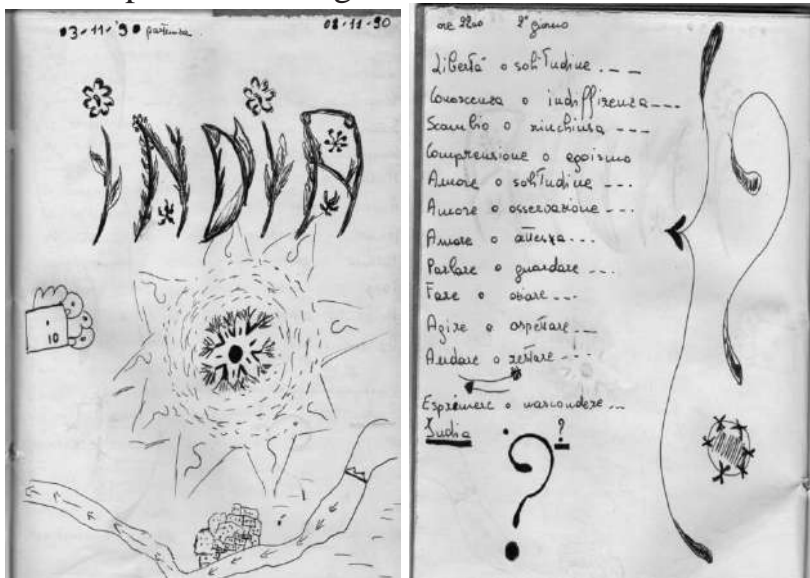 03-11-'90 partenza
08-11-90
INDIA
10
ore 22,00 2° giorno
Libertà o solitudine ....
Conoscenza o indiffirenza ...
Scambio o rinchiusa ...
Comprensione o egoismo
Amore o solitudine ...
Amore o osservazione ...
Amore o attesa ...
Parlare o guardare ...
Fare o
Agire o aspettare ...
Andare o restare ...
Esprimere o nascondere ...
India ?
?